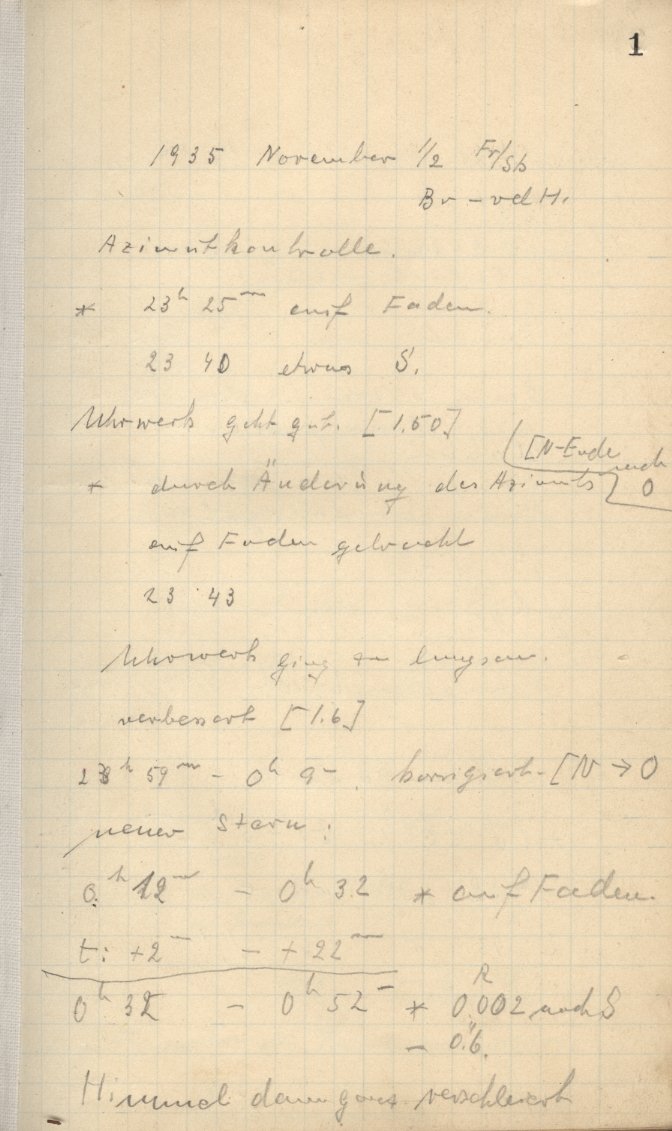 1
1935 November 1/2 Fr/Sb
Br – vdH.
Azimutkontrolle.
* 23h 25m auf Faden.
23 40 etwas S.
Uhrwerk geht gut. [1.50]
[N-Ende nach O
* durch Änderung des Azimuts
auf Faden gebracht
23 43
Uhrwerk ging zu langsam.
verbessert [1.6]
23h 59m – 0h 9m. korrigiert. [N → O
neuer Stern:
0h 12m – 0h 32 * auf Faden.
t: +2m – +22m
0h 32 – 0h 52m * 0R.002 nach S
= 0".6.
Himmel dann ganz verschleiert